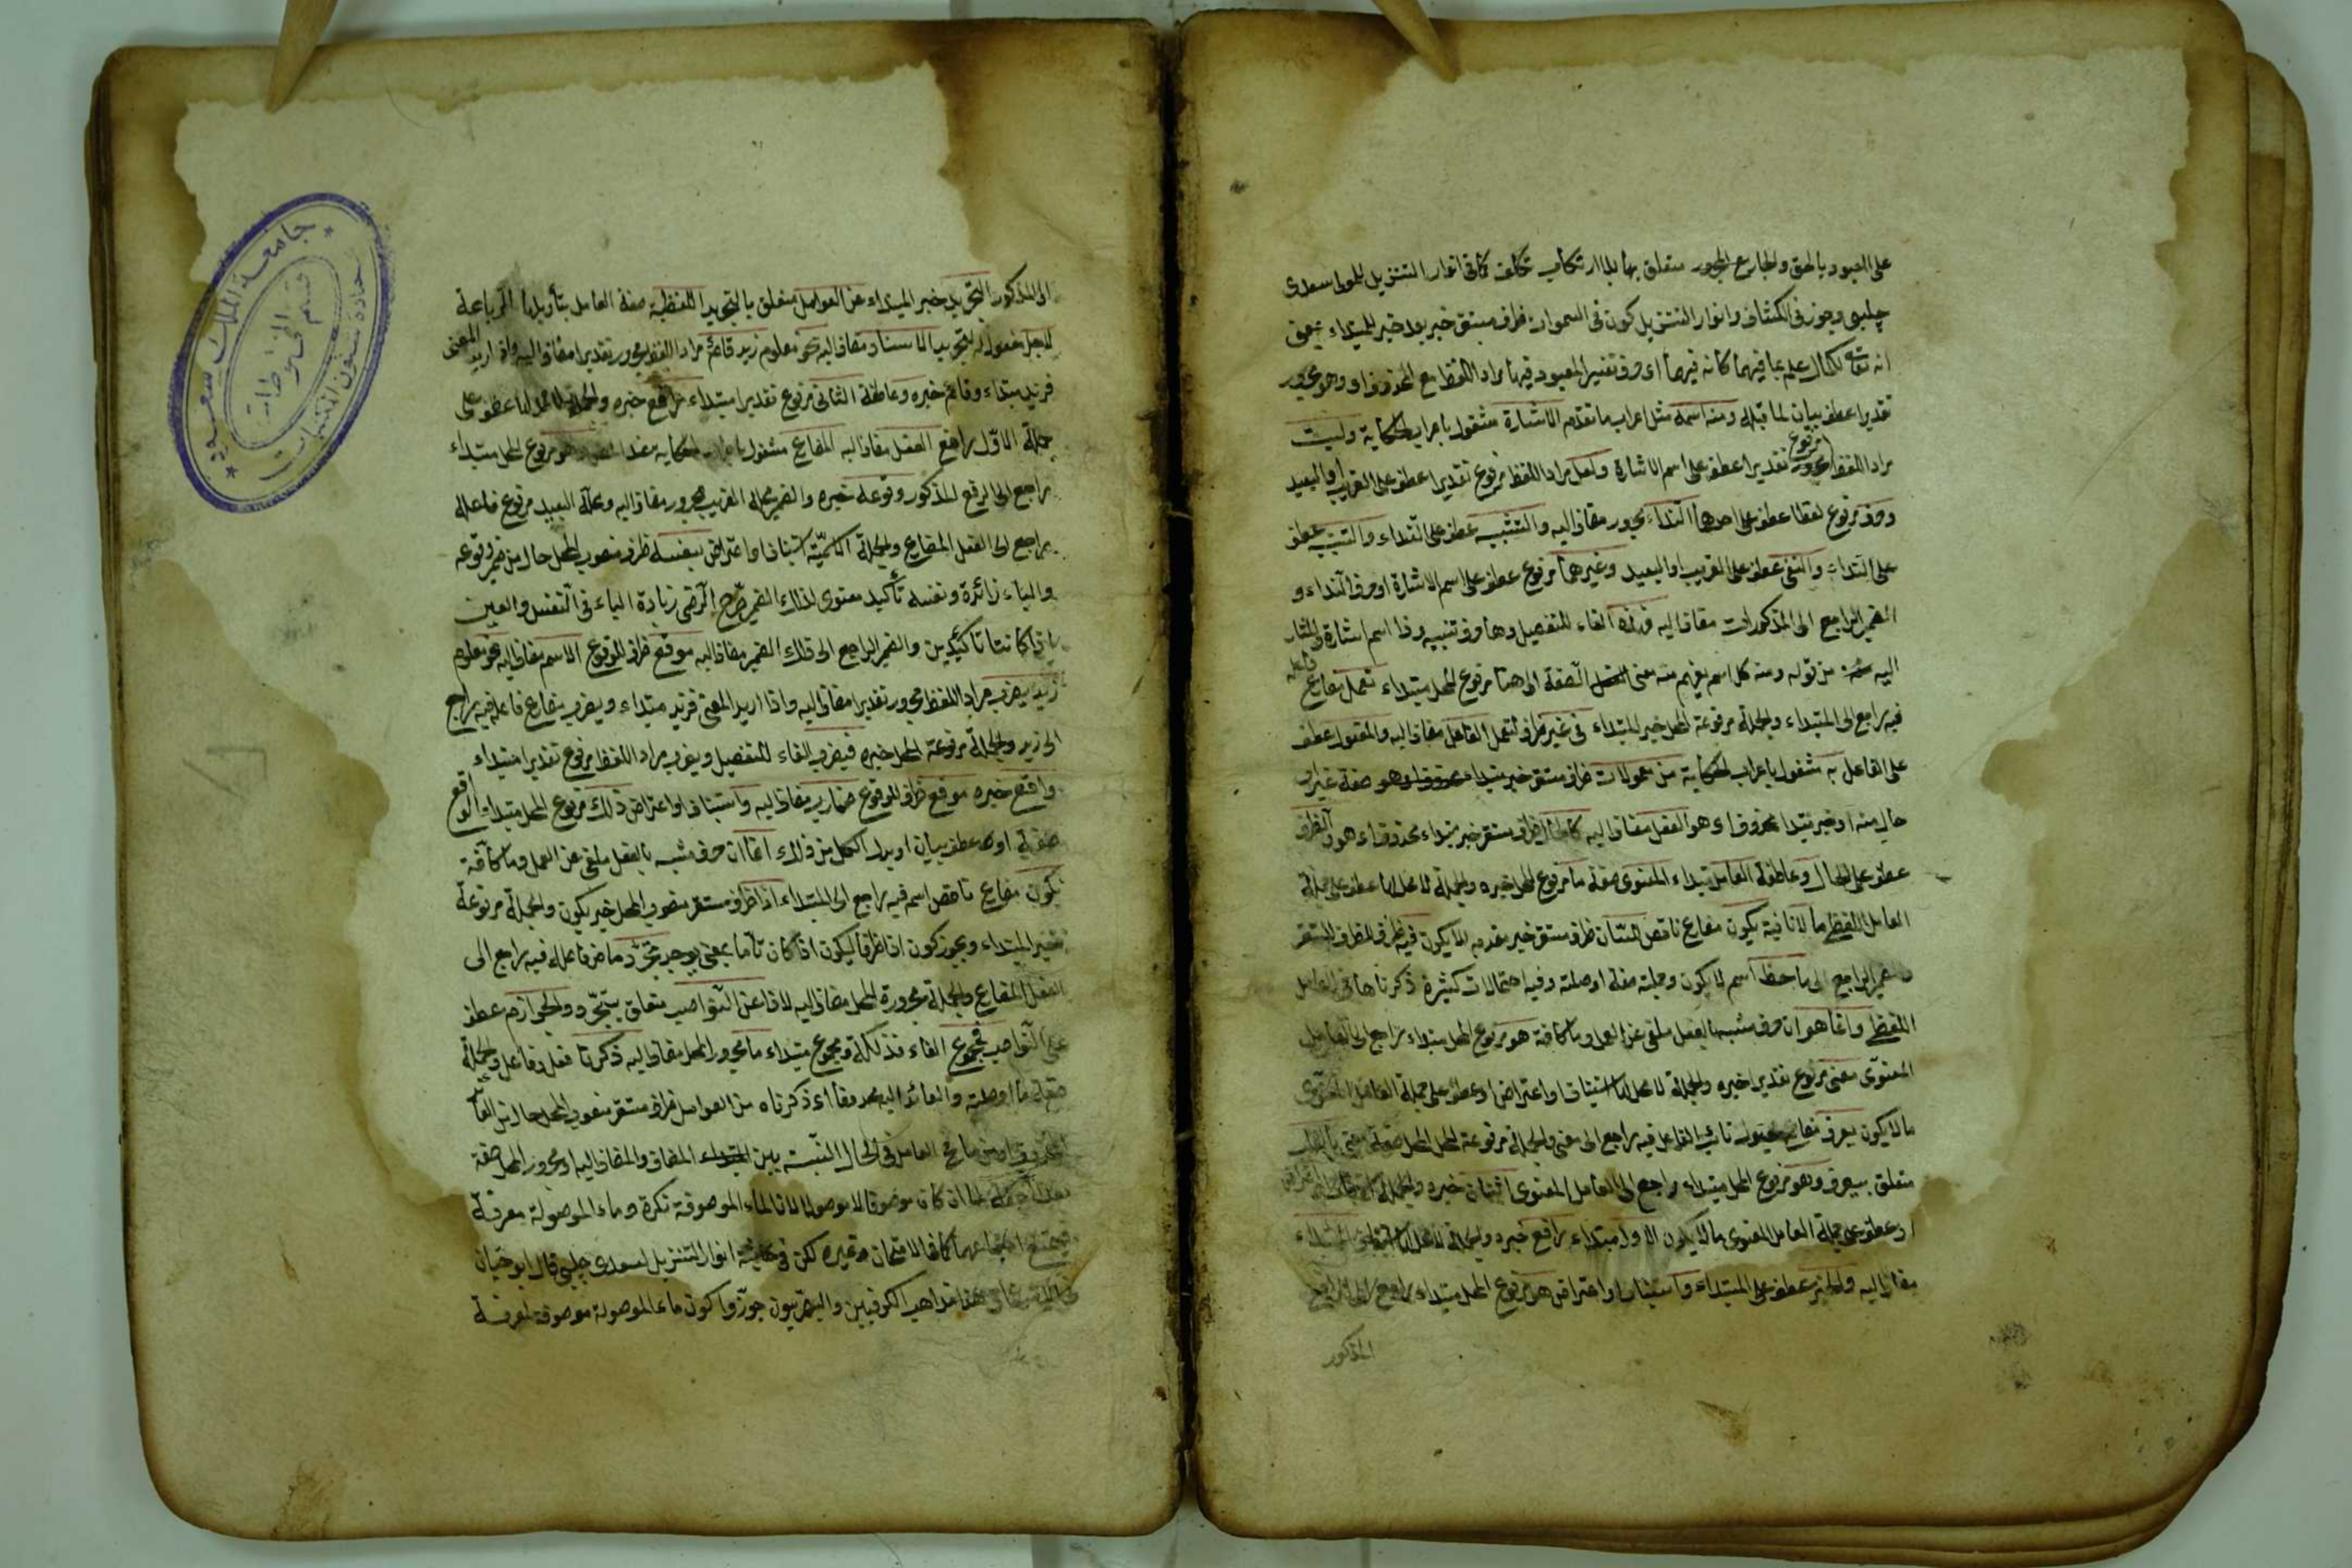 على المعبود بالحق والجار مع المجرور متعلق بها بلا ارتكاب تكلف كما في انوار التنزيل للمولى سعدى
چلبى وجوز في الكشاف وانوار التنزيل كون في السموات ظرف مستقر خبر بعد خبر للمبتداء بمعنى
انه تعالى لكمال علمه بما فيهما كانه فيهما اى حرف تفسير المعبود فيها مراد اللفظ مع المحذوف او وهو مجرور
تقديرا عطف بيان لما قبله ومنه اسمه مثل اعراب ما تقدم الاشارة مشغول باعراب الحكاية وليت
مراد اللفظ مرفوع تقديرا عطف على اسم الاشارة ولعل مراد اللفظ مرفوع تقديرا عطف على القريب او البعيد
وحرف مرفوع لفظا عطف على احدهما النداء مجرور مضاف اليه والتشبيه عطف على النداء والتنبيه عطف
على النداء والنفى عطف على القريب او البعيد وغيرهما مرفوع عطف على اسم الاشارة او حرف النداء و
الضمير الراجع الى المذكورات مضاف اليه فهذه الفاء للتفصيل وها حرف تنبيه وذا اسم اشارة والمشار
اليه من قوله ومنه كل اسم يفهم منه معنى الصفة الى هنا مرفوع المحل مبتداء تعمل مضارع فاعله
فيه راجع الى المبتداء والجملة مرفوعة المحل خبر المبتداء في غير ظرف لتعمل الفاعل مضاف اليه والمفعول عطف
على الفاعل به مشغول باعراب الحكاية من معمولات ظرف مستقر خبر مبتداء محذوف اى وهو صفة غير او
حال منه او خبر مبتدا محذوف اى هو الفعل مضاف اليه كالحال ظرف مستقر خبر مبتداء محذوف اى هو والظرف
عطف على الحال وعاطفة العامل مبتداء المعنوى صفة ما مرفوع المحل خبره والجملة لا محل لها عطف على جملة
العامل اللفظي ما لا نافية يكون مضارع ناقص للسان ظرف مستقر خبر مقدم للا يكون فيه ظرف للظرف المستقر
والضمير الراجع الى ما حظ اسم لا يكون وجملته صفة او صلته وفيه احتمالات كثيرة ذكرناها في العامل
اللفظي وانما هو ان حرف مشبه بالفعل ملغى عن العمل وما كافة هو مرفوع المحل مبتداء راجع الى العامل
المعنوى معنى مرفوع تقديرا خبره والجملة لا محل لها استيناف او اعتراض او عطف على جملة العامل المعنوى
ما لا يكون يعرف مضارع مجهول نائب الفاعل فيه راجع الى معنى والجملة مرفوعة المحل صفة معنى بالقلب
متعلق بيعرف وهو مرفوع المحل مبتداء راجع الى العامل المعنوى اثنان خبره والجملة
او عطف على جملة العامل المعنوى ما لا يكون الاول مبتداء رافع خبره والجملة لا محل لها المبتداء
مضاف اليه والخبر عطف على المبتداء واستيناف او اعتراض هو مرفوع المحل مبتداء راجع الى الرافع
المذكور
المذكور التجريد خبر المبتداء عن العوامل متعلق بالتجريد اللفظية صفة العامل بتأويلها
لاجل مفعول له للتجريد الاسناد مضاف اليه نحو معلوم زيد قائم مراد اللفظ مجرور تقديرا مضاف اليه واذا اريد المعنى
فزيد مبتداء وقائم خبره وعاطفة الثانى مرفوع تقديرا مبتداء رافع خبره والجملة لا محل لها عطف على
جملة الاول رافع الفعل مضاف اليه المضارع مشغول الحكاية هو مرفوع المحل مبتداء
راجع الى الرافع المذكور وقوعه خبره والضمير محله القريب مجرور مضاف اليه ومحله البعيد مرفوع فاعله
راجع الى الفعل المضارع والجملة الاسمية استيناف او اعتراض بنفسه ظرف منصوب المحل حال من ضمير وقوعه
والباء زائدة ونفسه تأكيد معنوى لذلك الضمير صرح الرضى زيادة الباء في النفس والعين
كانتا تأكيدين والضمير الراجع الى ذلك الضمير مضاف اليه موقع ظرف للوقوع الاسم مضاف اليه نحو معلوم
زيد يضرب مراد اللفظ مجرور تقديرا مضاف اليه واذا اريد المعنى فزيد مبتداء ويضرب مضارع فاعله فيه راجع
الى زيد والجملة مرفوعة المحل خبره فيضرب الفاء للتفصيل ويضرب مراد اللفظ مرفوع تقديرا مبتداء
واقع خبره موقع ظرف للوقوع ضارب مضاف اليه واستيناف او اعتراض ذلك مرفوع المحل مبتداء الواقع
صفة او عطف بيان او بدل الكل من ذلك انما ان حرف مشبه بالفعل ملغى عن العمل وما كافة
يكون مضارع ناقص اسم فيه راجع الى المبتداء اذا ظرف مستقر منصوب المحل خبر يكون والجملة مرفوعة
خبر المبتداء ويجوز كون اذا ظرفا ليكون اذا كان تاما بمعنى يوجد تجرد ماض فاعله فيه راجع الى
الفعل المضارع والجملة مجرورة المحل مضاف اليه لاذا عن النواصب متعلق بتجرد والجوازم عطف
على النواصب فمجموع الفاء فذلكة ومجموع مبتداء ما مجرور المحل مضاف اليه ذكرنا فعل وفاعل والجملة
صفة ما او صلته والعائد اليه محذوف اى ذكرناه من العوامل ظرف مستقر منصوب المحل حال من العائد
المحذوف او من ما مع العامل في الحال النسبة بين المضاف والمضاف اليه او مجرور المحل صفة
ان كان موصوفا لا موصولا لان الماء الموصوفة نكرة وماء الموصولة معرفة
كما في الامتحان وغيره لكن في حاشية انوار التنزيل لسعدى چلبى قال ابو حيان
هذا مذاهب الكوفيين والبصريون جوزوا كون ماء الموصولة موصوفة لمعرفة
جامعة الملك سعود
قسم المخطوطات
عمادة شئون المكتبات